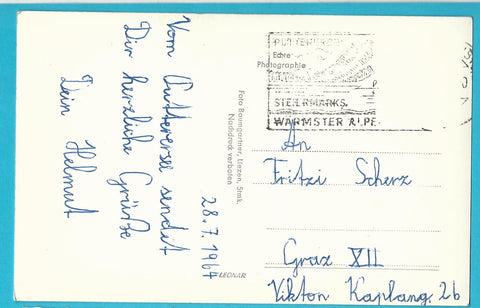 Vom Putterersee sendet
Dir herzliche Grüße
Dein Helmut
28.7.1967
Foto Baumgartner, Liezen, Stmk.
Nachdruck verboten
LEONAR
Echte
Photographie
PUTTERERSEE
STEIERMARKS
WÄRMSTER ALPE
An
Fritzi Scherz
Graz XII
Viktor Kaplang. 2b